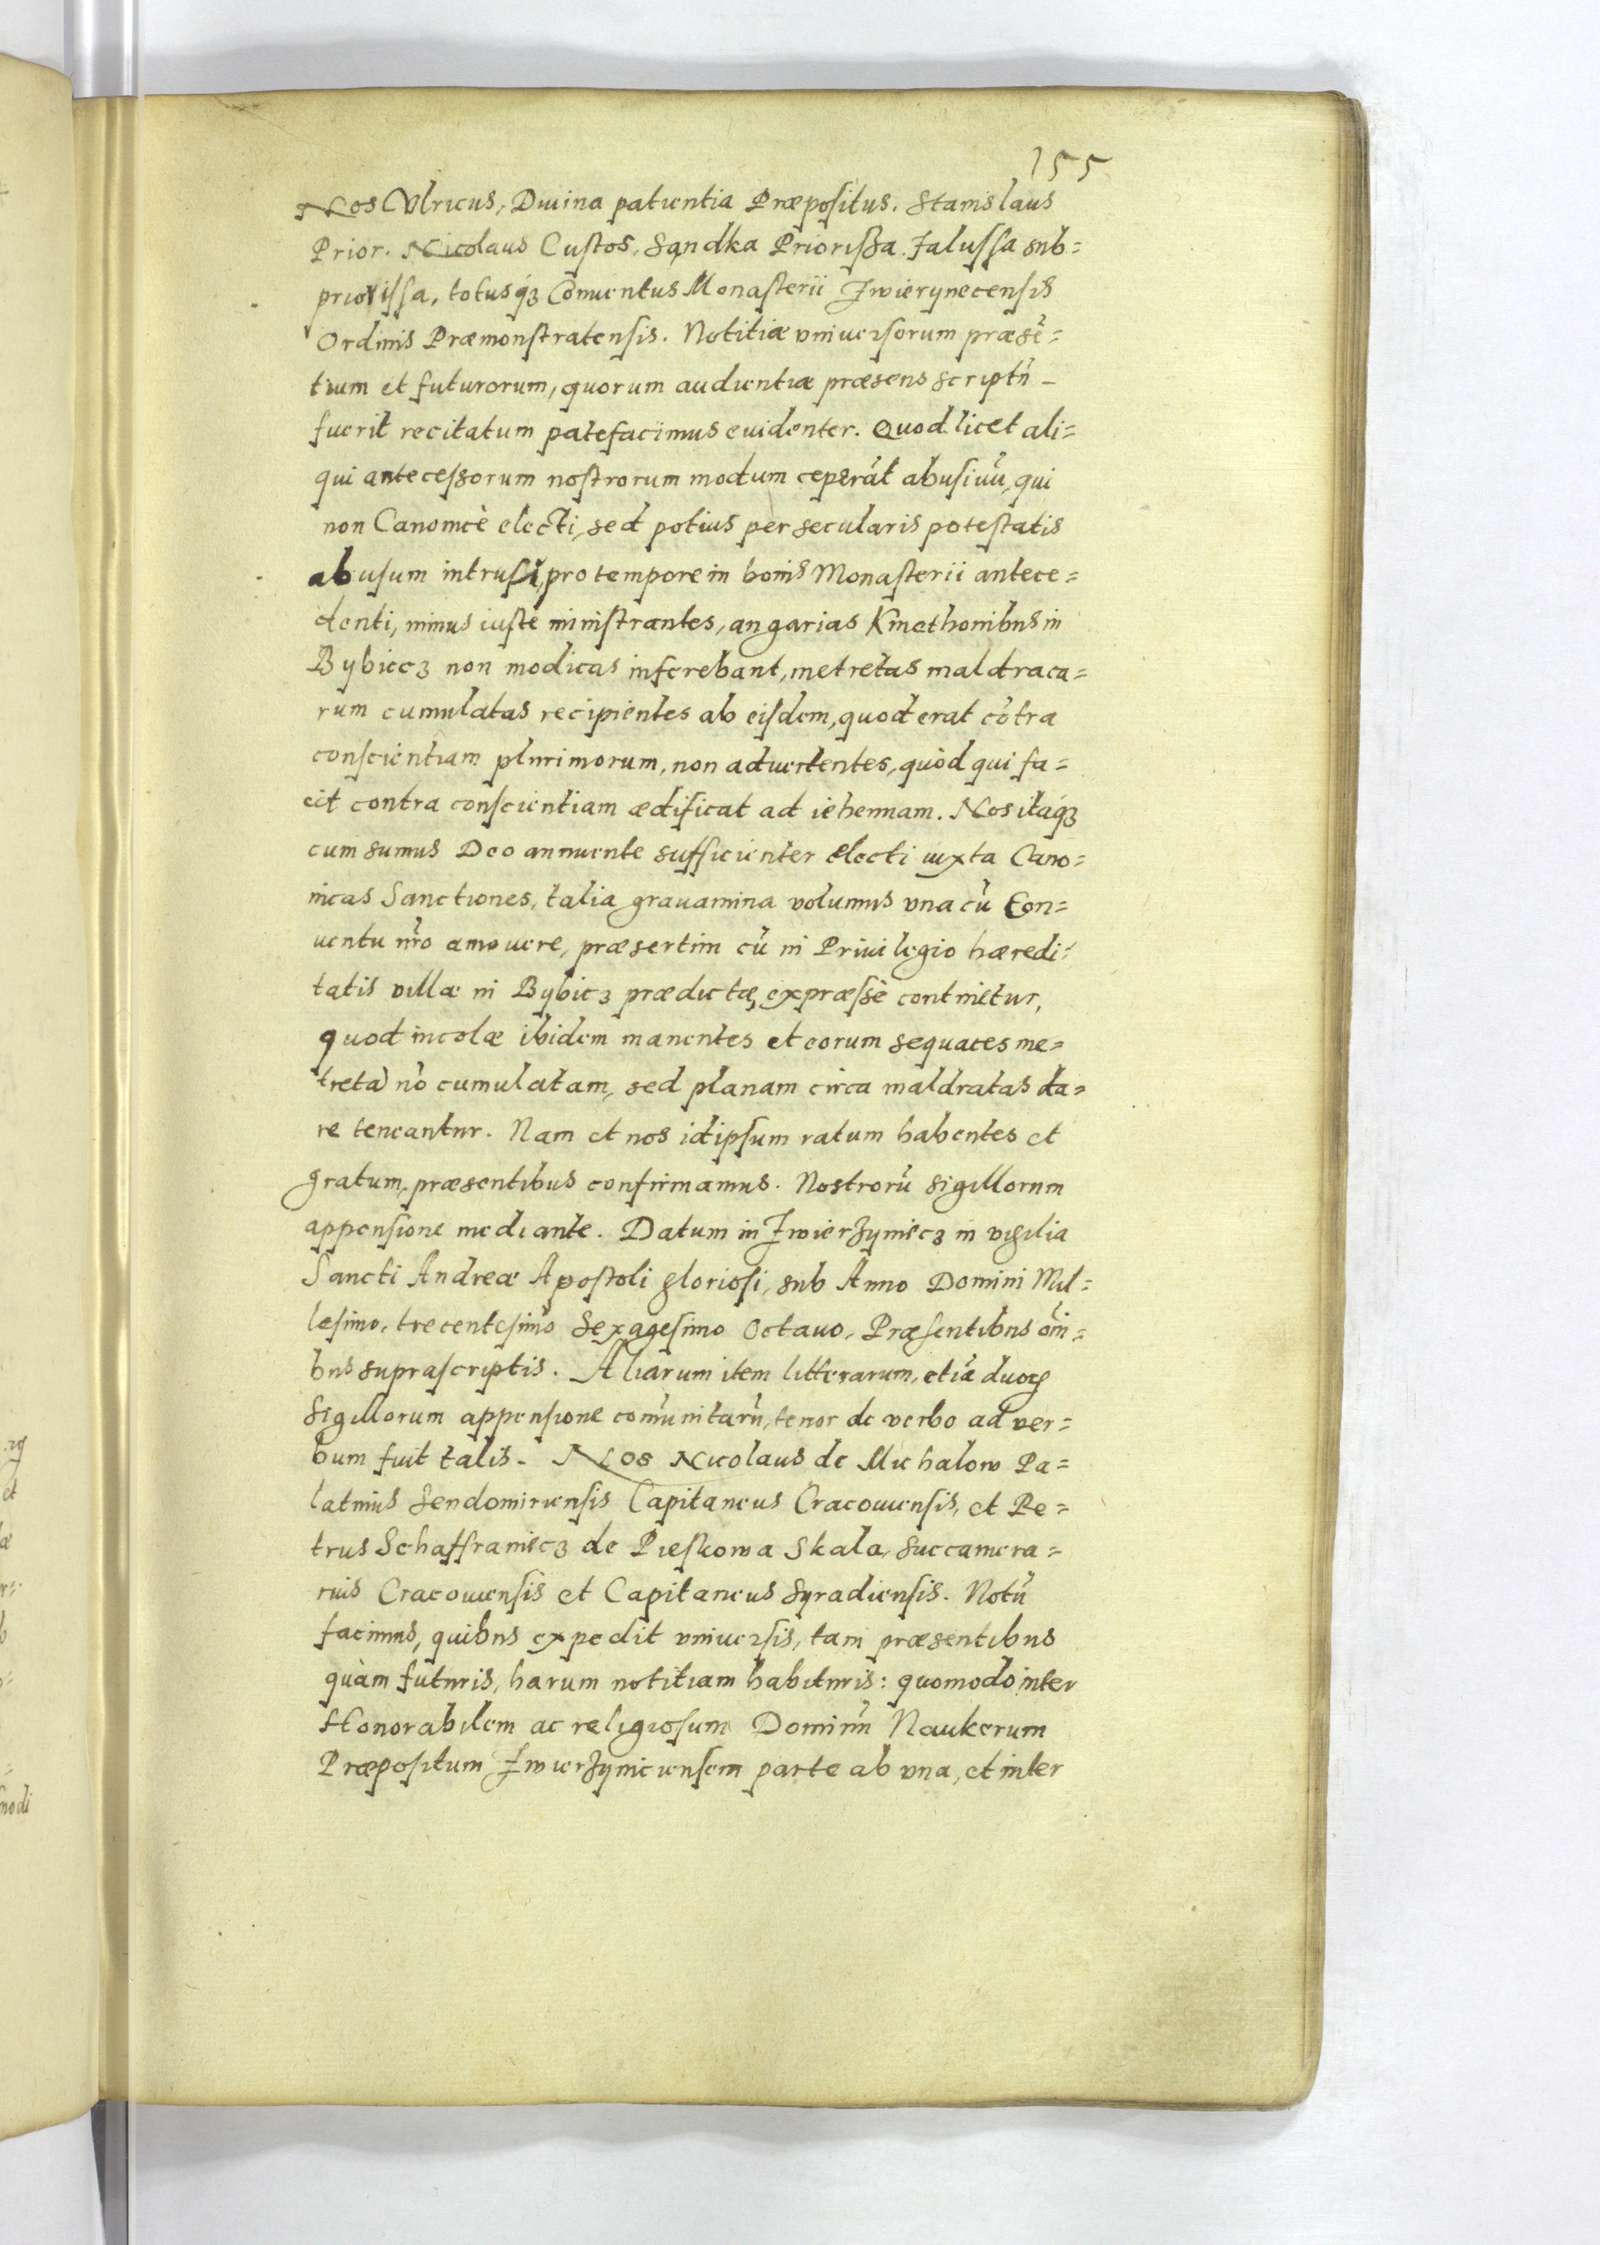 155
Nos Vlricus, Diuina patientia Præpositus. Stanislaus
Prior. Nicolaus Custos, Sandka Priorissa. Jalussa sub=
priorissa, totusq́ꝫ Conuentus Monasterii Zwierynecensis
Ordinis Præmonstratensis. Notitiæ vniuersorum præsē=
tium et futurorum, quorum audientiæ præsens scriptū
fuerit recitatum patefacimus euidenter. Quod licet ali=
qui antecessorum nostrorum modum ceperāt abusiuū, qui
non Canonicè electi, sed potius per secularis potestatis
abusum intrusi, pro tempore in bonis Monasterii antece=
denti, minus iustè ministrantes, angarias Kmethonibus in
Bybiecz non modicas inferebant, metretas maldraca=
rum cumulatas recipientes ab eisdem, quod erat cōtra
conscientiam plurimorum, non aduertentes, quòd qui fa=
cit contra conscientiam ædificat ad iehennam. Nos itaq́ꝫ
cum sumus Deo annuente sufficienter electi iuxta Cano=
nicas Sanctiones, talia grauamina volumus vna cū Con=
uentu nr̄o amouere, præsertim cū in Priuilegio hæredi=
tatis villæ in Bybicz prædictæ, expræssè continetur,
quod incolæ ibidem manentes et eorum sequaces me=
tretā nō cumulatam, sed planam circa maldratas da=
re teneantur. Nam et nos idipsum ratum habentes et
gratum, præsentibus confirmamus. Nostrorū sigillorum
appensione mediante. Datum in Zwierzyniecz in vigilia
Sancti Andreæ Apostoli gloriosi, sub Anno Domini Mil=
lesimo, trecentesimo Sexagesimo Octauo, Præsentibus om̄=
bus suprascriptis. Aliarum item litterarum, etiā duoꝝ
Sigillorum appensione com̄unitarū, tenor de verbo ad ver=
bum fuit talis. Nos Nicolaus de Michalow Pa=
latinus Sendomiriensis Capitaneus Cracouiensis, et Pe=
trus Schaffraniecz de Pieskowa Skala, Succamera=
rius Cracouiensis et Capitaneus Syradiensis. Notū
facimus, quibus expedit vniuersis, tam præsentibus
quàm futuris, harum notitiam habituris: quomodo inter
Honorabilem ac religiosum Dominū Naukerum
Præpositum Zwierzyniciensem parte ab vna, et inter